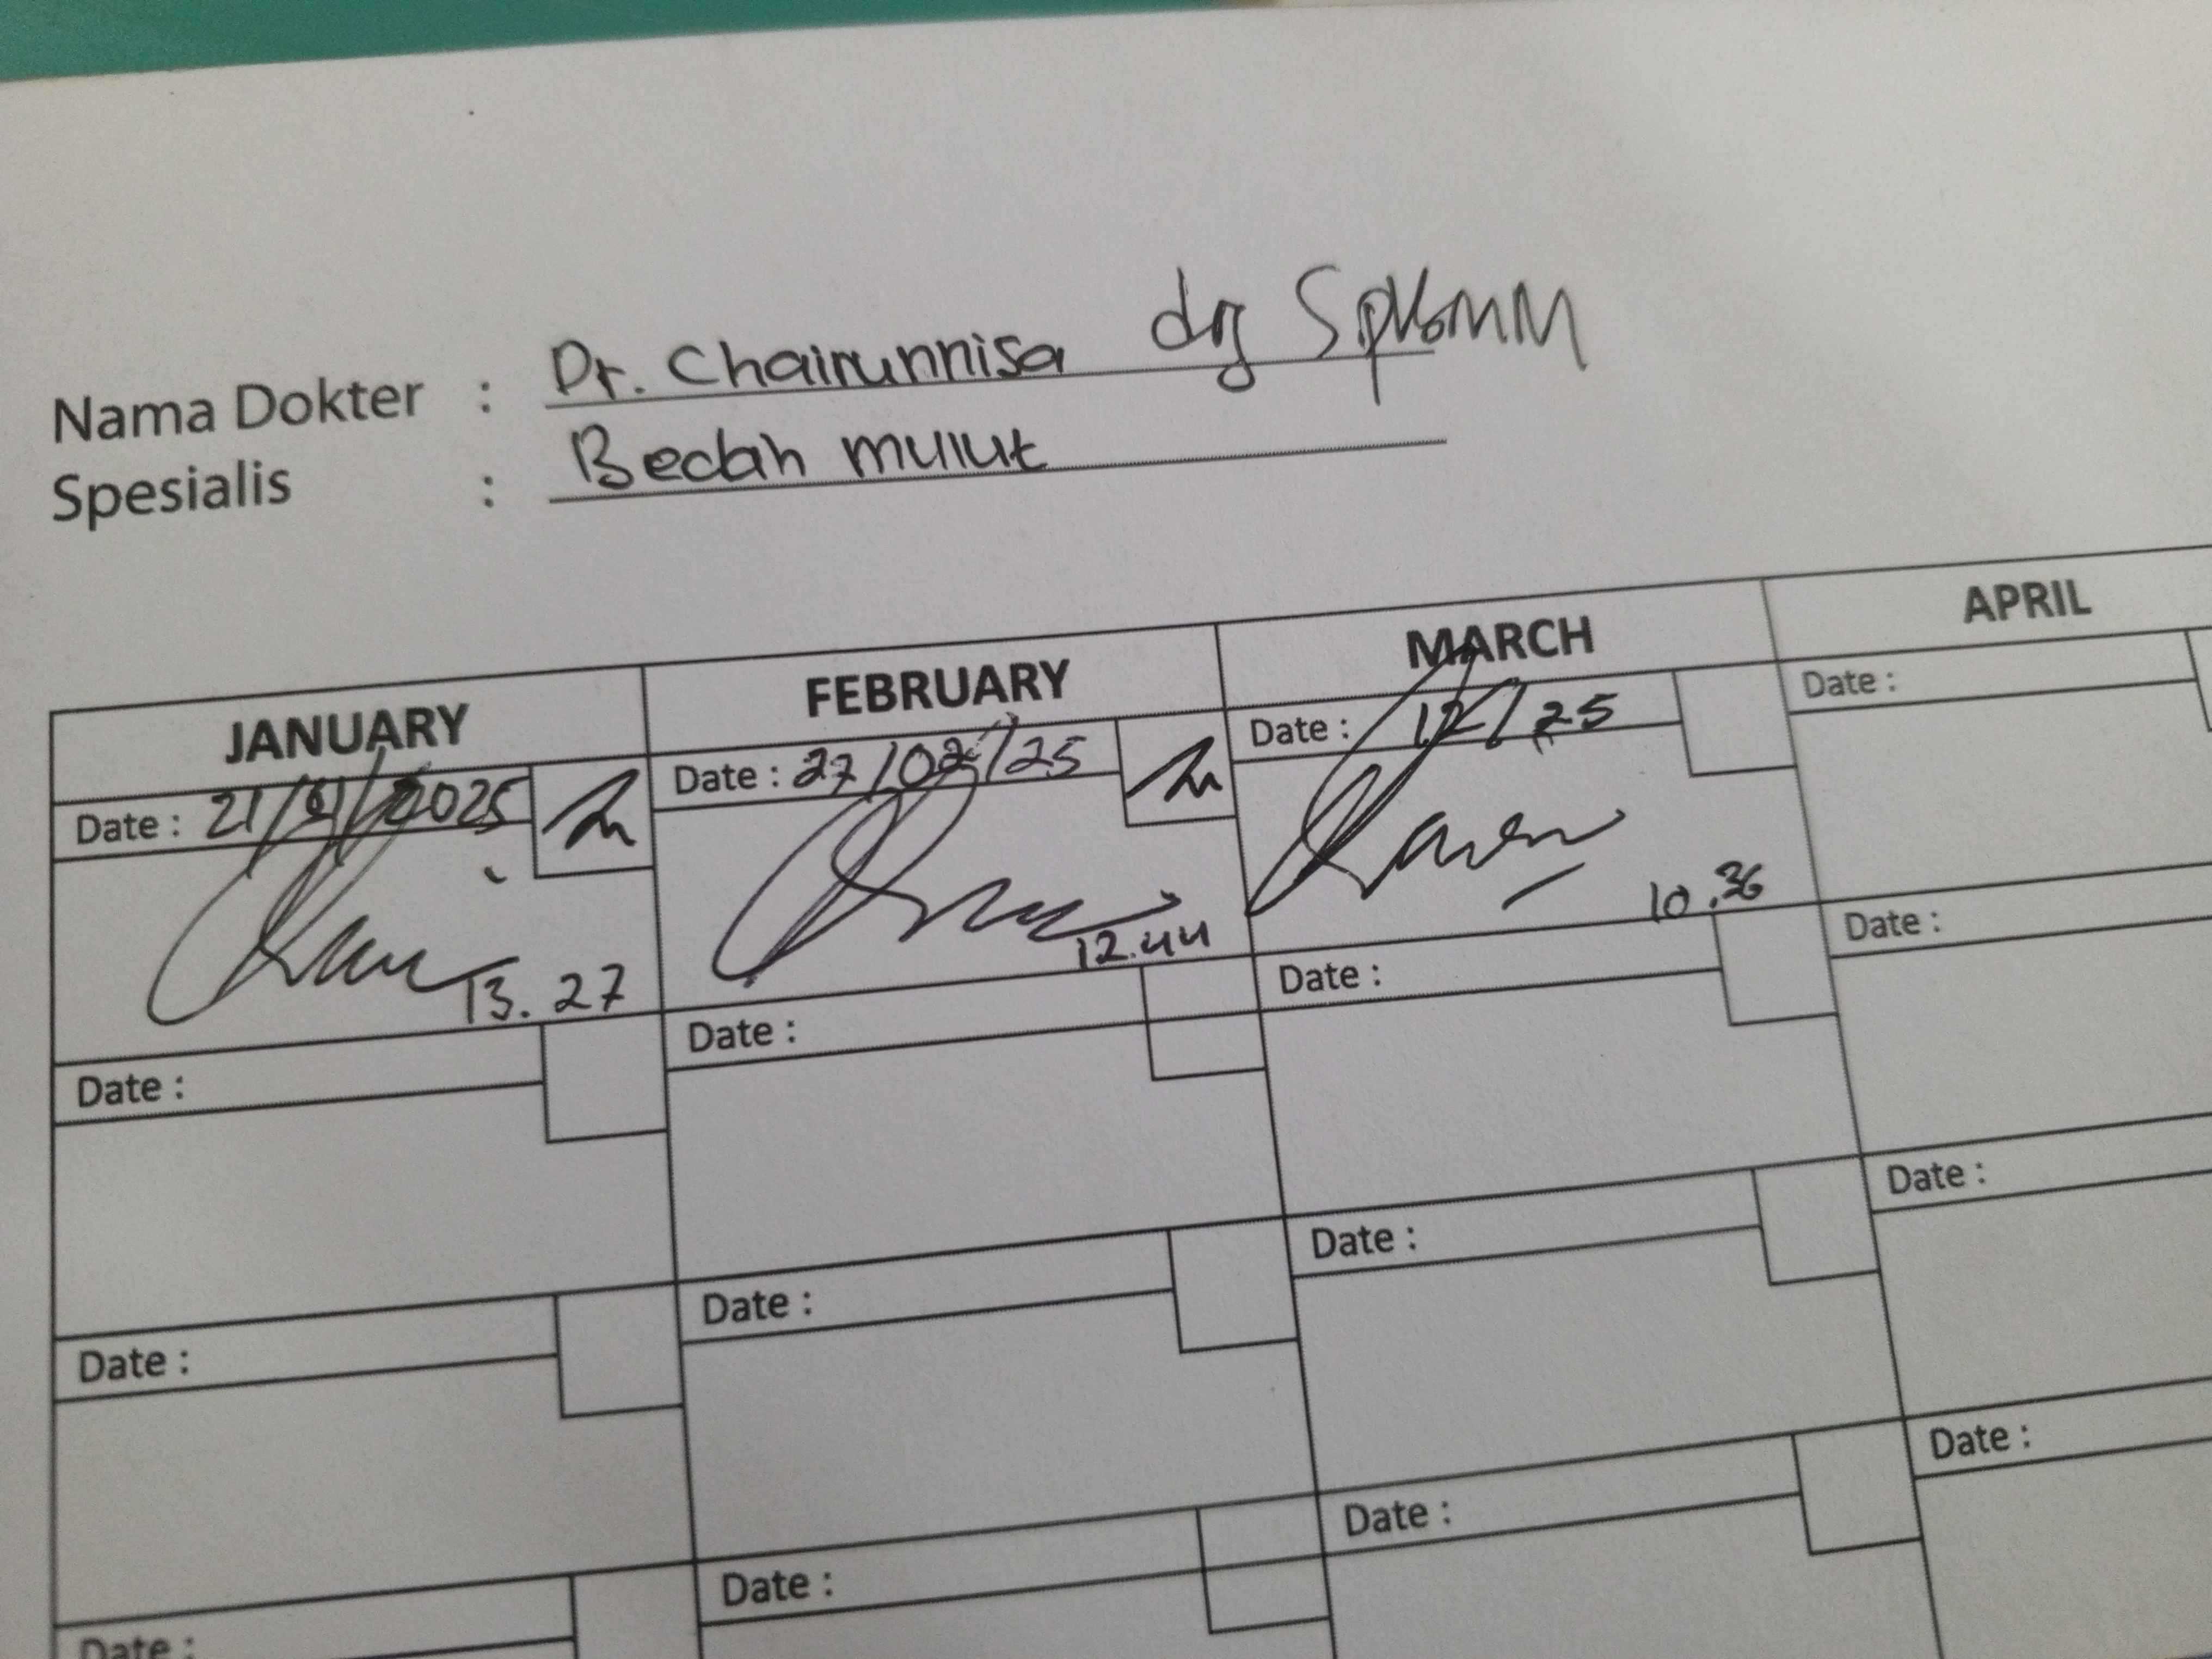 Nama Dokter : Dr. Chairunnisa drg SpKGMM
Spesialis : Bedah mulut
JANUARY FEBRUARY MARCH APRIL
Date : 21/01/2025 Date : 27/02/25 Date : 12/ /25 Date :
13.27 12.44 10.36
Date : Date : Date : Date :
Date : Date : Date : Date :
Date : Date : Date : Date :